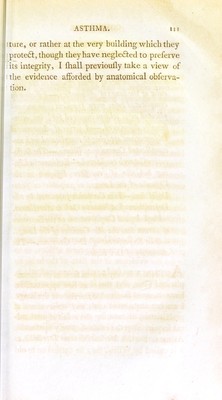 ASTHMA. 111
ture, or rather at the very building which they
protect, though they have neglected to preſerve
its integrity, I ſhall previouſly take a view of
the evidence afforded by anatomical obſerva-
tion.